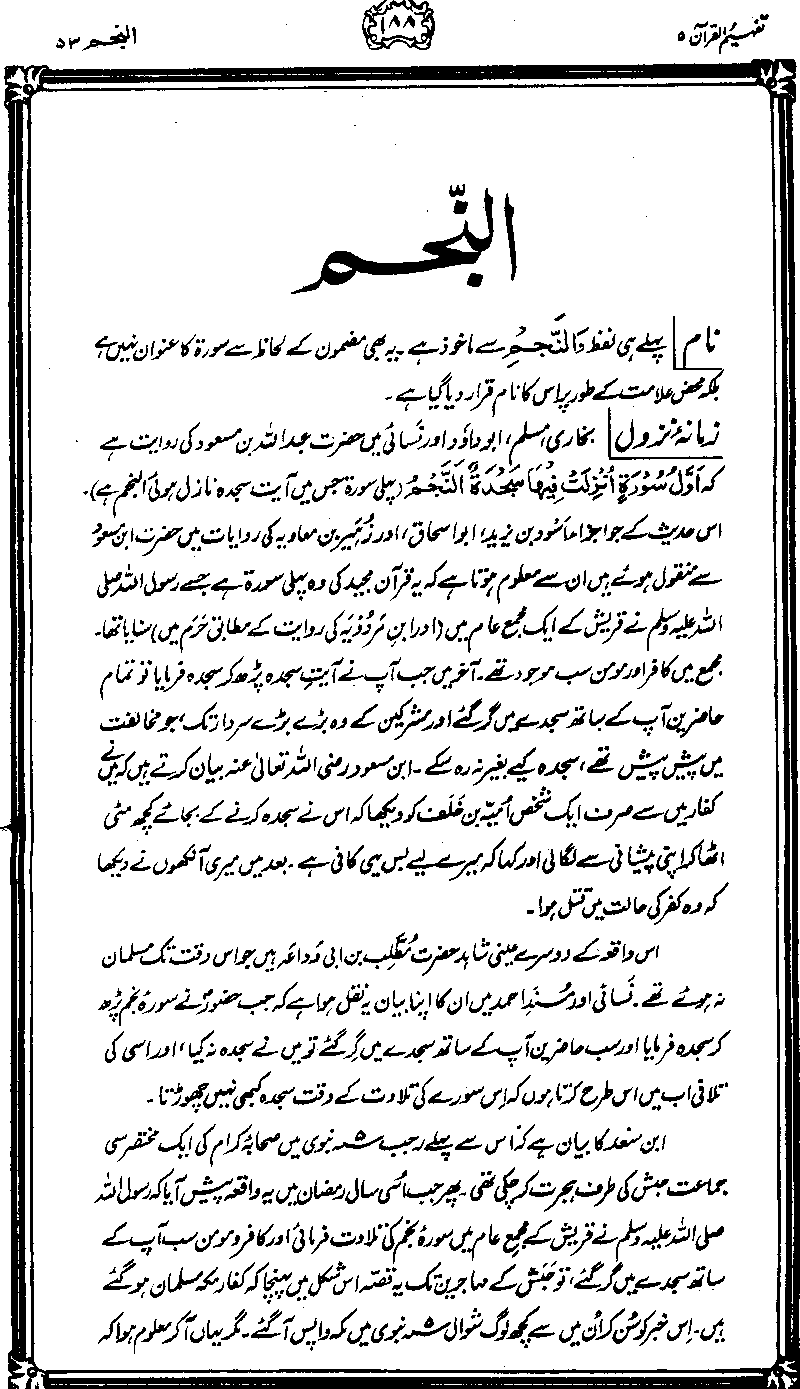 تفہیم القرآن ۵
۱۸۸
النجم ۵۳
النّجم
نام پہلے ہی لفظ وَالنَّجْمِ سے ماخوذ ہے۔ یہ بھی مضمون کے لحاظ سے سورۃ کا عنوان نہیں ہے
بلکہ محض علامت کے طور پر اس کا نام قرار دیا گیا ہے۔
زمانۂ نزول بخاری، مسلم، ابوداؤد اور نَسائی میں حضرت عبداللہ بن مسعود کی روایت ہے
کہ اَوَّلُ سُوْرَۃٍ اُنْزِلَتْ فِیْھَا سَجْدَۃٌ اَلنَّجْمُ (پہلی سورۃ جس میں آیت سجدہ نازل ہوئی النجم ہے)۔
اس حدیث کے جو اجزاء اَسْوَد بن یزید، ابو اسحاق، اور زُہَیر بن معاویہ کی روایات میں حضرت ابن مسعود
سے منقول ہوئے ہیں ان سے معلوم ہوتا ہے کہ یہ قرآن مجید کی وہ پہلی سورۃ ہے جسے رسول اللہ صلی
اللہ علیہ وسلم نے قریش کے ایک مجمع عام میں (اور ابنِ مَرْدُوْیَہ کی روایت کے مطابق حَرَم میں) سنایا تھا۔
مجمع میں کافر اور مومن سب موجود تھے۔ آخر میں جب آپ نے آیتِ سجدہ پڑھ کر سجدہ فرمایا تو تمام
حاضرین آپ کے ساتھ سجدے میں گر گئے اور مشرکین کے وہ بڑے بڑے سردار تک، جو مخالفت
میں پیش پیش تھے، سجدہ کیے بغیر نہ رہ سکے۔ ابن مسعود رضی اللہ تعالیٰ عنہ بیان کرتے ہیں کہ میں نے
کفار میں سے صرف ایک شخص اُمیّہ بن خَلَف کو دیکھا کہ اس نے سجدہ کرنے کے بجائے کچھ مٹی
اٹھا کر اپنی پیشانی سے لگا لی اور کہا کہ میرے لیے بس یہی کافی ہے۔ بعد میں میری آنکھوں نے دیکھا
کہ وہ کفر کی حالت میں قتل ہوا۔
اس واقعہ کے دوسرے عینی شاہد حضرت مُطَّلِب بن ابی وَداعہ ہیں جو اس وقت تک مسلمان
نہ ہوئے تھے۔ نَسائی اور مُسْنَدِ احمد میں ان کا اپنا بیان یہ نقل ہوا ہے کہ جب حضورؐ نے سورۂ نجم پڑھ
کر سجدہ فرمایا اور سب حاضرین آپ کے ساتھ سجدے میں گر گئے تو میں نے سجدہ نہ کیا، اور اسی کی
تلافی اب میں اس طرح کرتا ہوں کہ اِس سورے کی تلاوت کے وقت سجدہ کبھی نہیں چھوڑتا۔
ابن سعد کا بیان ہے کہ اس سے پہلے رجب ۵ نبوی میں صحابۂ کرام کی ایک مختصر سی
جماعت حبش کی طرف ہجرت کر چکی تھی۔ پھر جب اُسی سال رمضان میں یہ واقعہ پیش آیا کہ رسول اللہ
صلی اللہ علیہ وسلم نے قریش کے مجمع عام میں سورۂ نجم کی تلاوت فرمائی اور کافر و مومن سب آپ کے
ساتھ سجدے میں گر گئے، تو حَبَش کے مہاجرین تک یہ قصّہ اس شکل میں پہنچا کہ کفار مکہ مسلمان ہو گئے
ہیں۔ اِس خبر کو سُن کر اُن میں سے کچھ لوگ شوال ۵ نبوی میں مکہ واپس آ گئے۔ مگر یہاں آ کر معلوم ہوا کہ